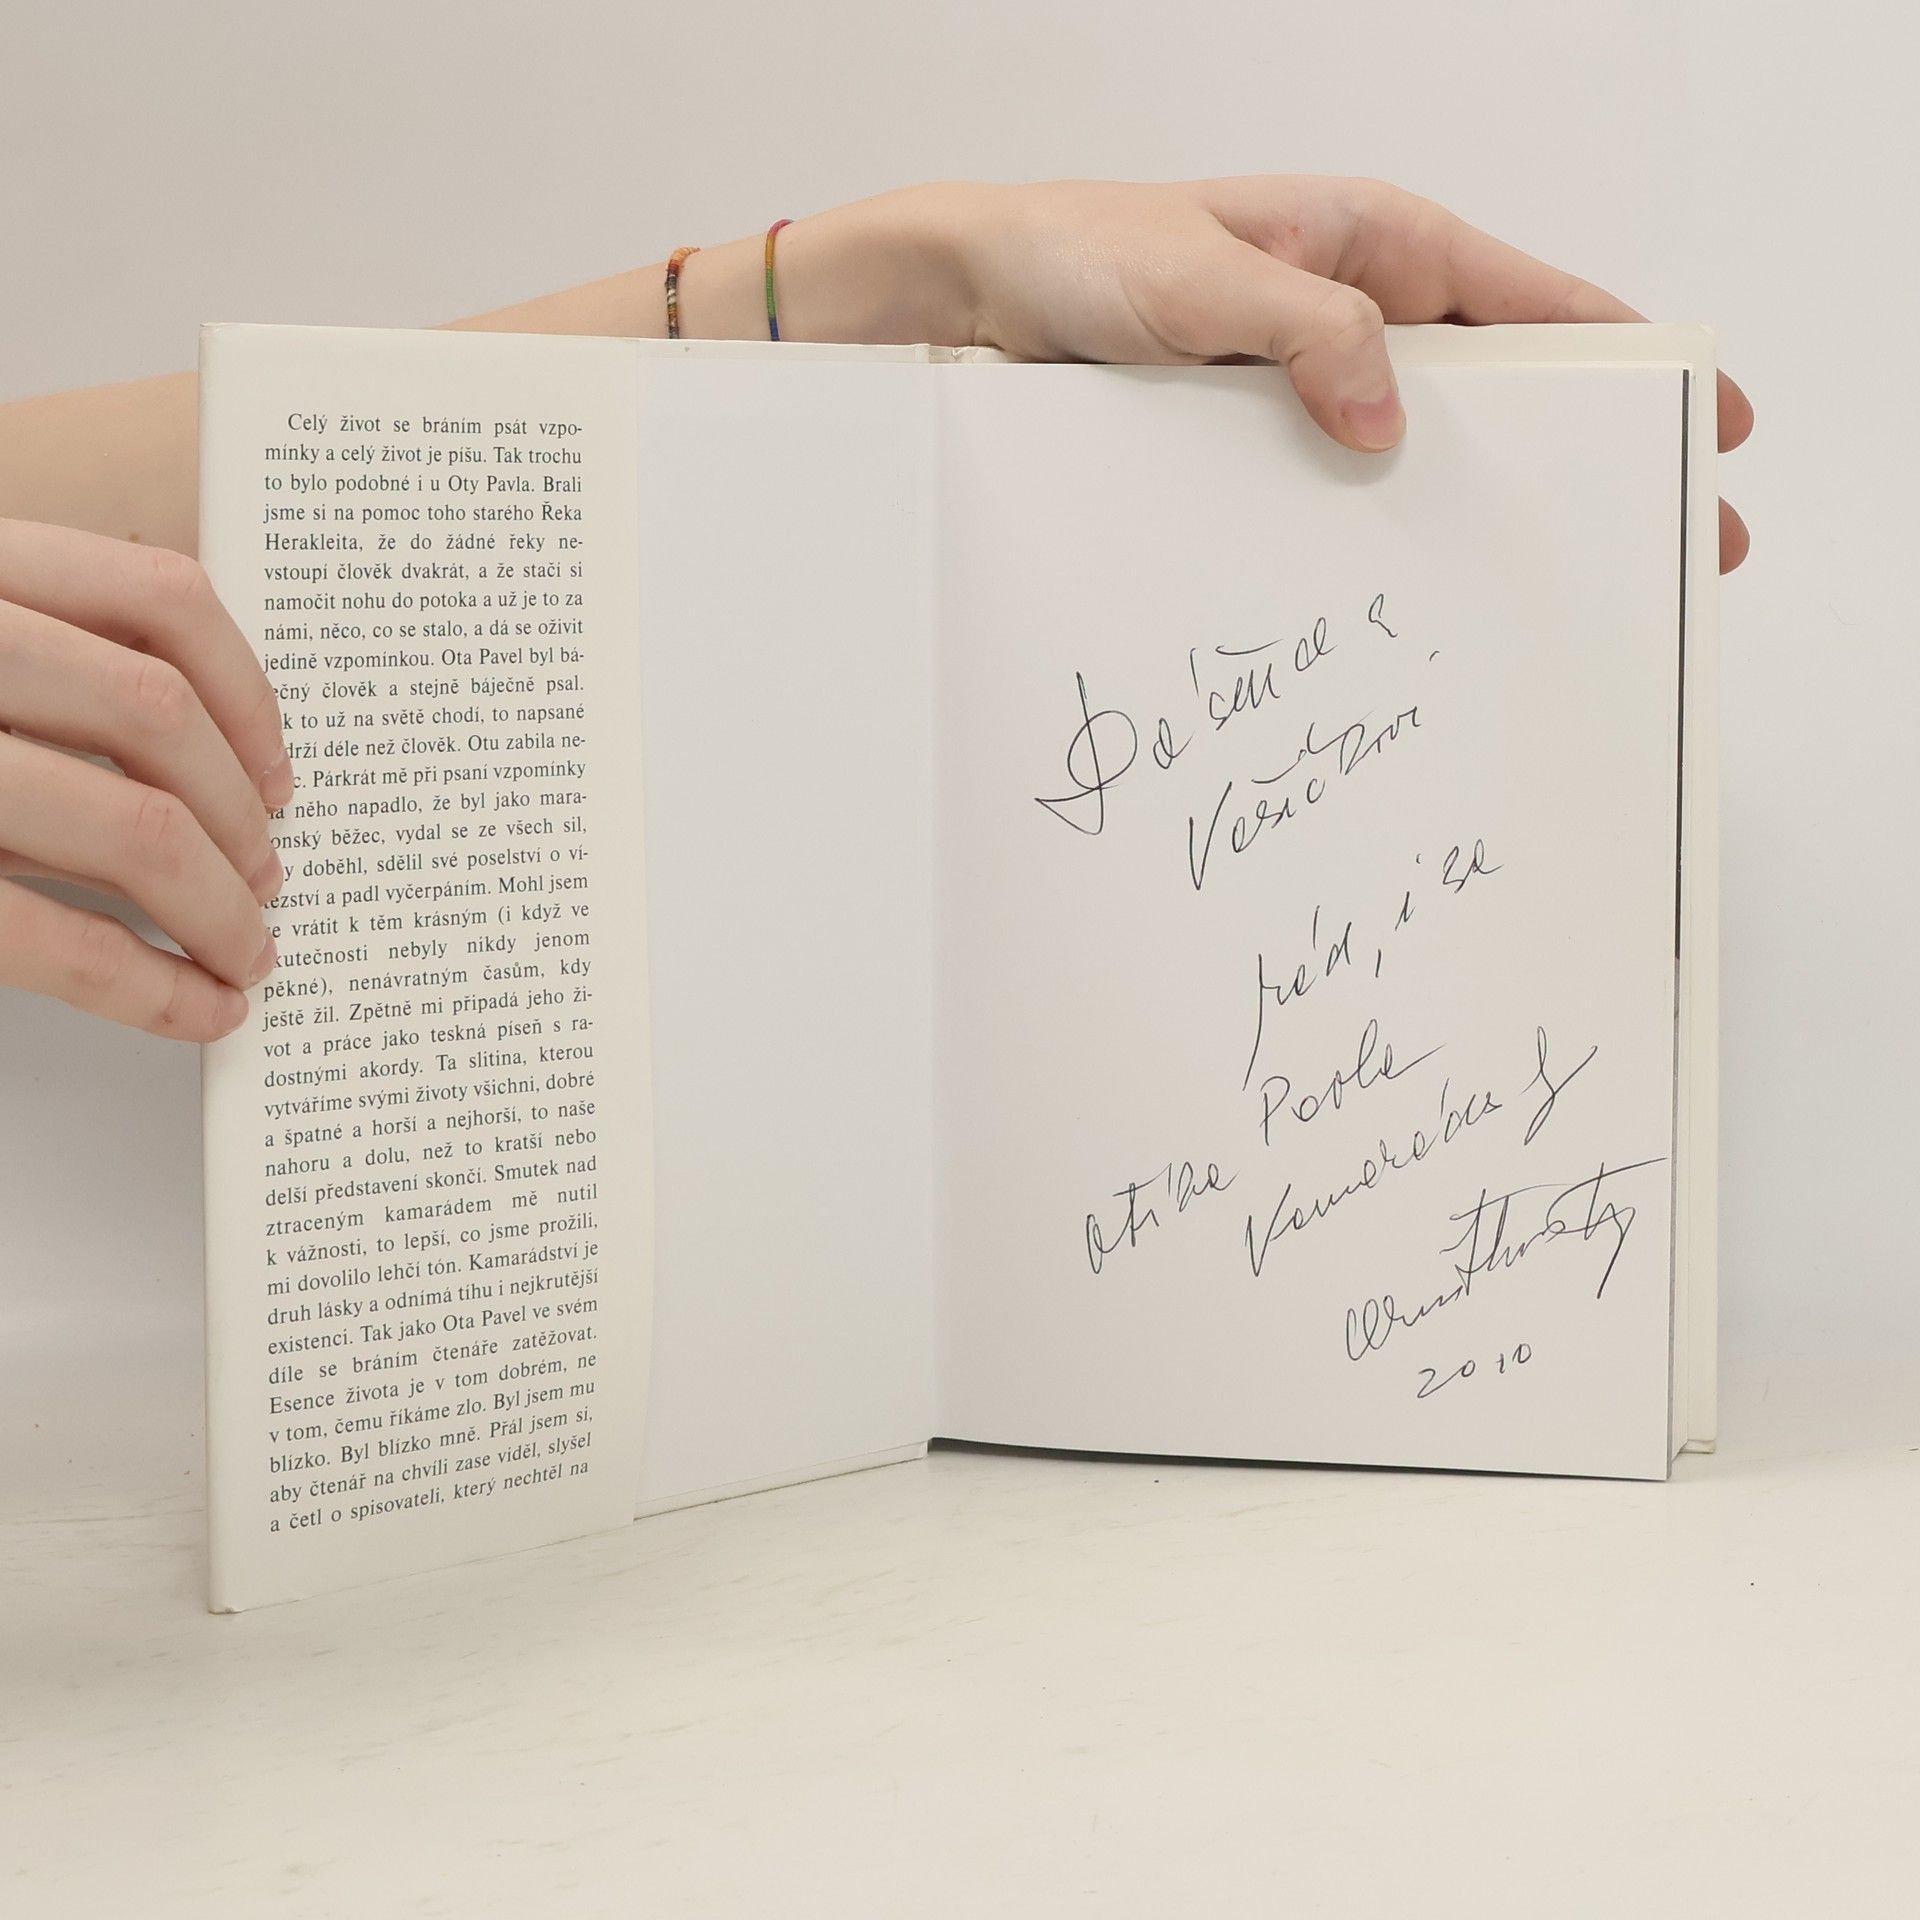 Celý život se bráním psát vzpo-
mínky a celý život je píšu. Tak trochu
to bylo podobné i u Oty Pavla. Brali
jsme si na pomoc toho starého Řeka
Herakleita, že do žádné řeky ne-
vstoupí člověk dvakrát, a že stačí si
namočit nohu do potoka a už je to za
námi, něco, co se stalo, a dá se oživit
jedině vzpomínkou. Ota Pavel byl bá-
ečný člověk a stejně báječně psal.
k to už na světě chodí, to napsané
drží déle než člověk. Otu zabila ne-
c. Párkrát mě při psaní vzpomínky
na něho napadlo, že byl jako mara-
onský běžec, vydal se ze všech sil,
y doběhl, sdělil své poselství o ví-
ězství a padl vyčerpáním. Mohl jsem
e vrátit k těm krásným (i když ve
kutečnosti nebyly nikdy jenom
pěkné), nenávratným časům, kdy
ještě žil. Zpětně mi připadá jeho ži-
vot a práce jako teskná píseň s ra-
dostnými akordy. Ta slitina, kterou
vytváříme svými životy všichni, dobré
a špatné a horší a nejhorší, to naše
nahoru a dolu, než to kratší nebo
delší představení skončí. Smutek nad
ztraceným kamarádem mě nutil
k vážnosti, to lepší, co jsme prožili,
mi dovolilo lehčí tón. Kamarádství je
druh lásky a odnímá tíhu i nejkrutější
existenci. Tak jako Ota Pavel ve svém
díle se bráním čtenáře zatěžovat.
Esence života je v tom dobrém, ne
v tom, čemu říkáme zlo. Byl jsem mu
blízko. Byl blízko mně. Přál jsem si,
aby čtenář na chvíli zase viděl, slyšel
a četl o spisovateli, který nechtěl na
rád, i za
Pavla
kamaráda
2010